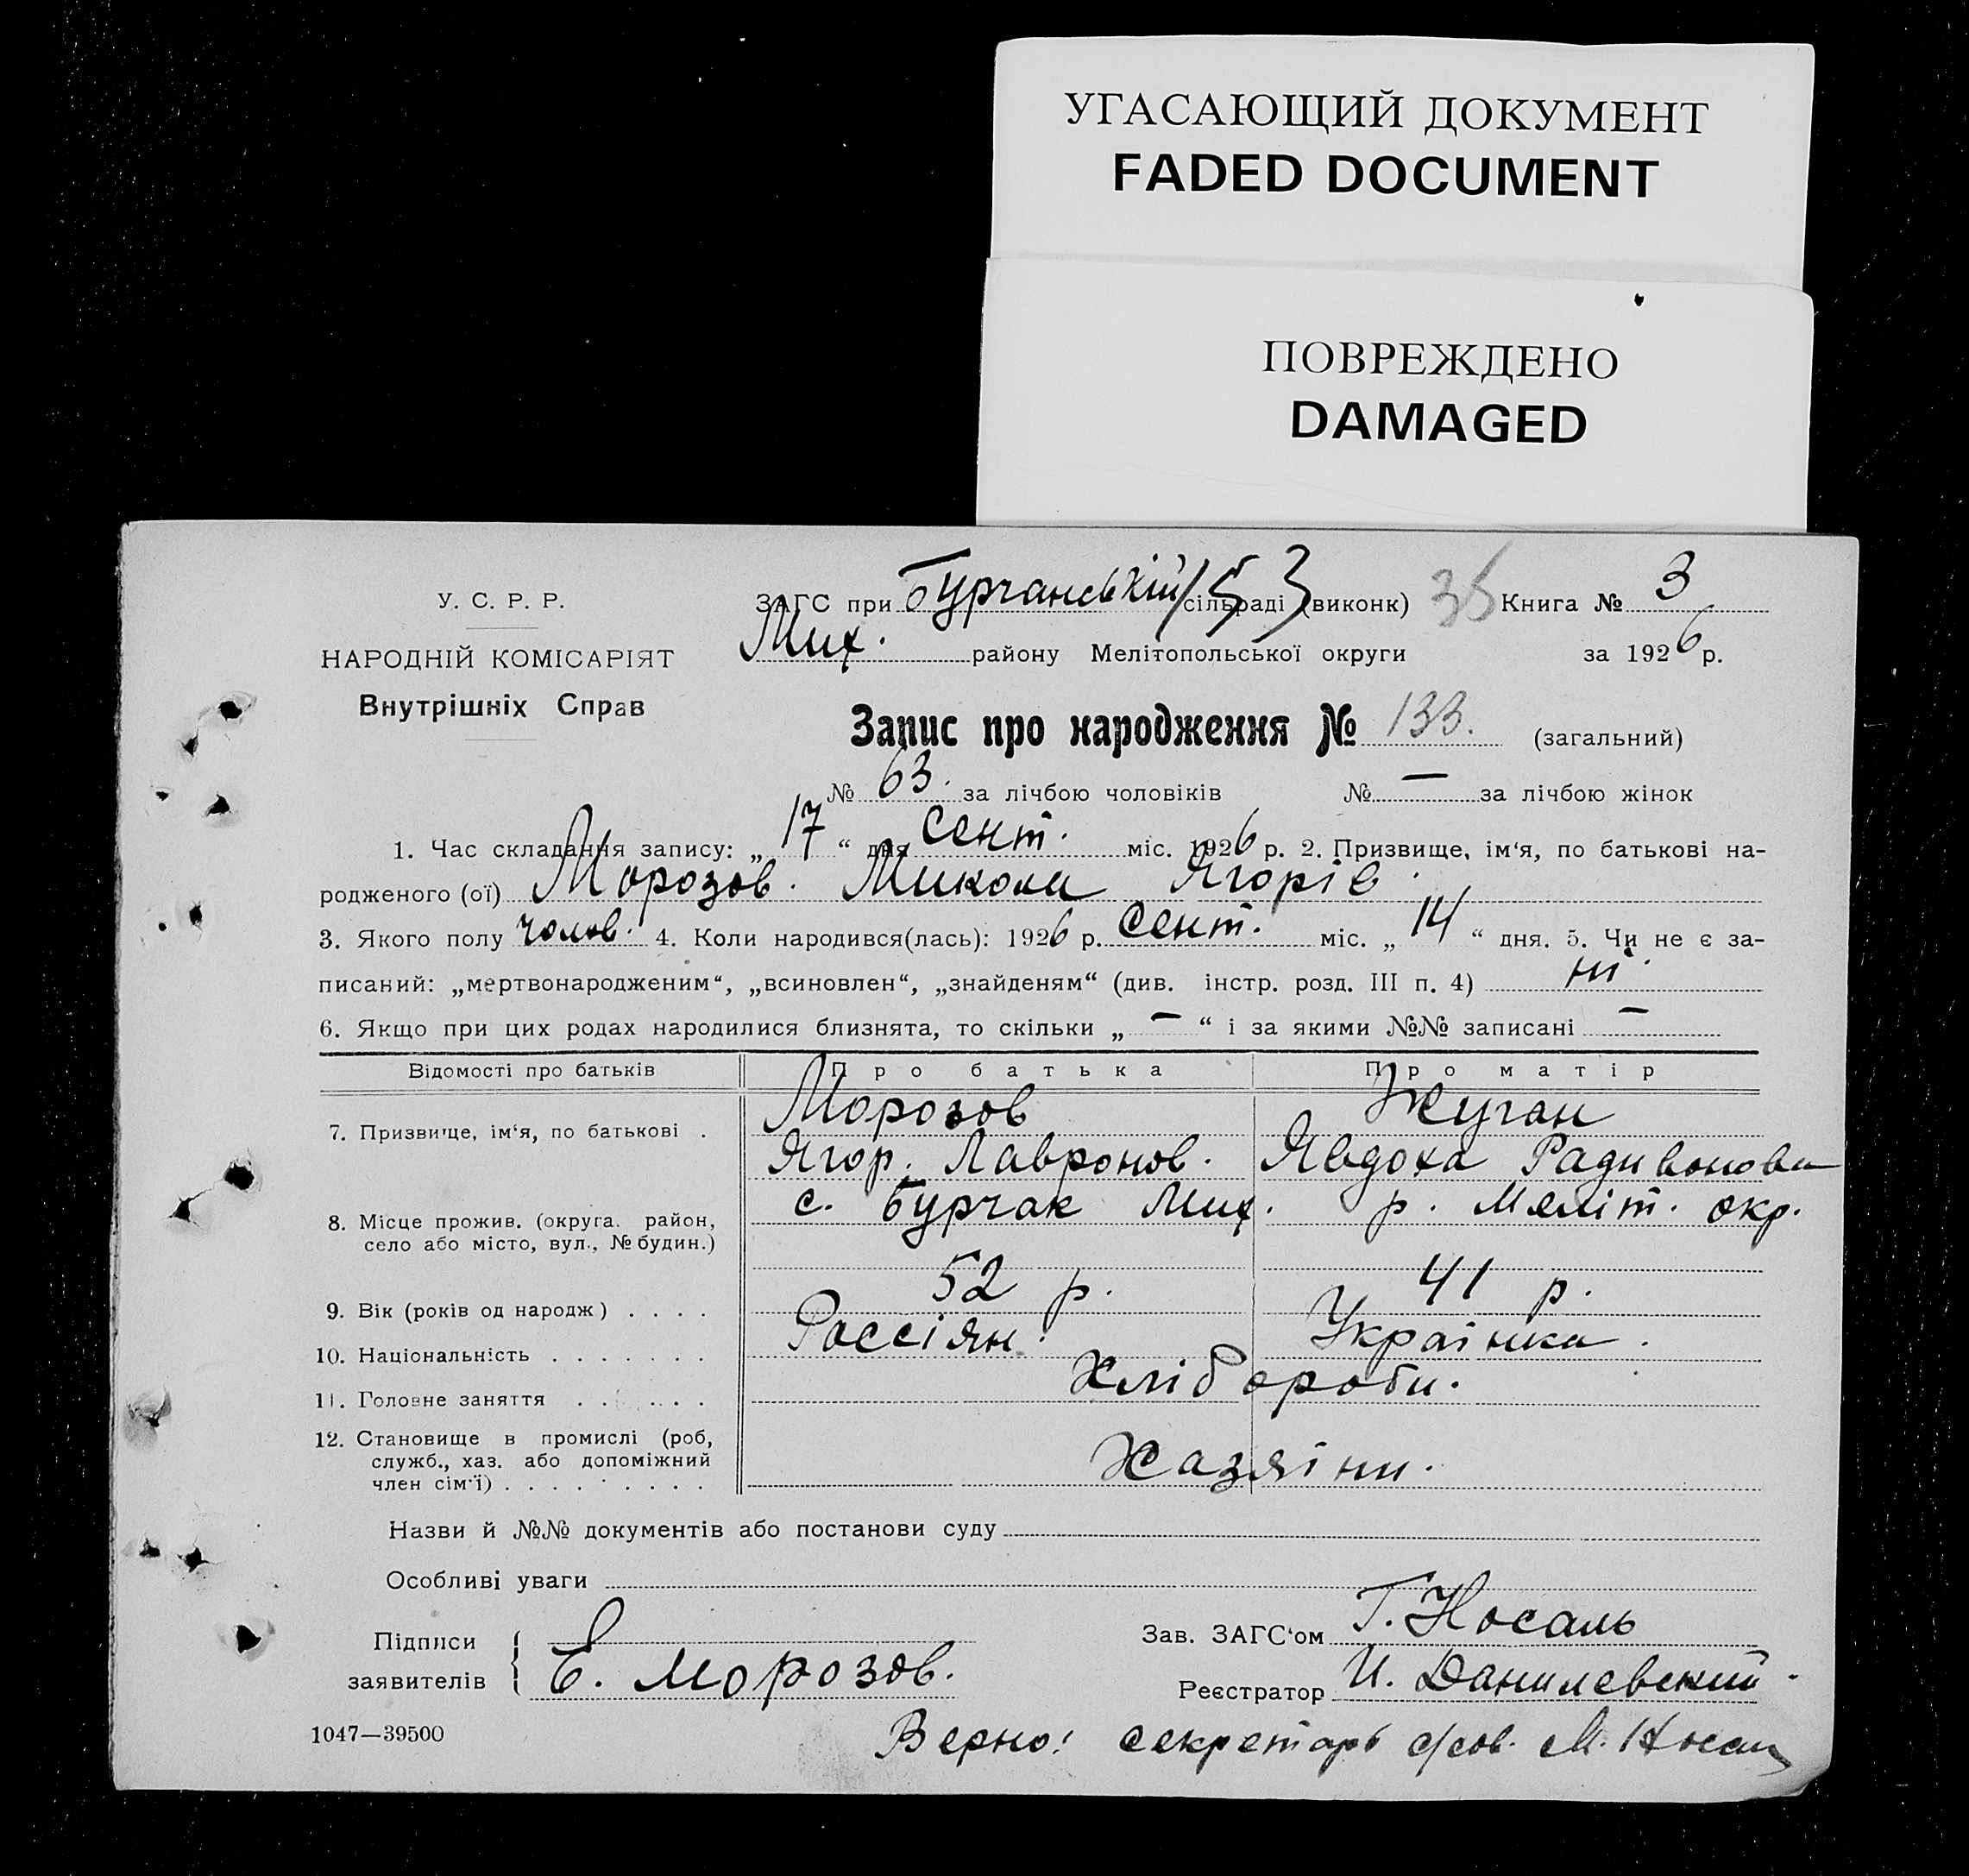 УГАСАЮЩИЙ ДОКУМЕНТ
FADED DOCUMENT
ПОВРЕЖДЕНО
DAMAGED
У. С. Р. Р.
НАРОДНІЙ КОМІСАРІЯТ
Внутрішніх Справ
ЗАГС при Бурчанській сільраді (виконк) Книга № 3
Мих. району Мелітопольської округи за 1926 р.
Запис про народження № 133. (загальний)
№ 63. за лічбою чоловіків № — за лічбою жінок
1. Час складання запису: „17“ дня сент. міс. 1926 р. 2. Призвище, ім‘я, по батькові на-
родженого (ої) Морозов. Микола Ягорів.
3. Якого полу чолов. 4. Коли народився(лась): 1926 р. сент. міс. „14“ дня. 5. Чи не є за-
писаний: „мертвонародженим“, „всиновлен“, „знайденям“ (див. інстр. розд. III п. 4) ні.
6. Якщо при цих родах народилися близнята, то скільки „—“ і за якими №№ записані —
Відомості про батьків Про батька Про матір
7. Призвище, ім‘я, по батькові . Морозов Жуган
Ягор. Лавронов. Явдоха Радивонова
8. Місце прожив. (округа. район, село або місто, вул., № будин.) с. Бурчак Мих. р. Меліт. окр.
9. Вік (років од народж) . . . . 52 р. 41 р.
10. Національність . . . . . . . Россіян. Українка.
11. Головне заняття . . . . . . Хлібороби.
12. Становище в промислі (роб,
служб., хаз. або допоміжний
член сім‘ї) . . . . . . . . . Хазяїни.
Назви й №№ документів або постанови суду
Особливі уваги
Підписи
заявителів Е. Морозов.
Зав. ЗАГС‘ом Г. Носаль
Реєстратор И. Данилевский.
1047—39500
Верно! секретарь с/сов. М. Носаль